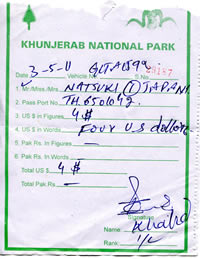 KHUNJERAB NATIONAL PARK
Date 3-5-11 Vehicle No. GLTA1599 S.No.
1. Mr./Miss./Mrs. NATSUKI (1) JAPANI
2. Pass Port No. TH6501642
3. US $ in Figures 4$
4. US $ in Words Four US dollars
5. Pak Rs. in Figures —
6. Pak Rs. in Words —
Total US $ 4$
Total Pak Rs. —
Signature
Name: Khalid
Rank: